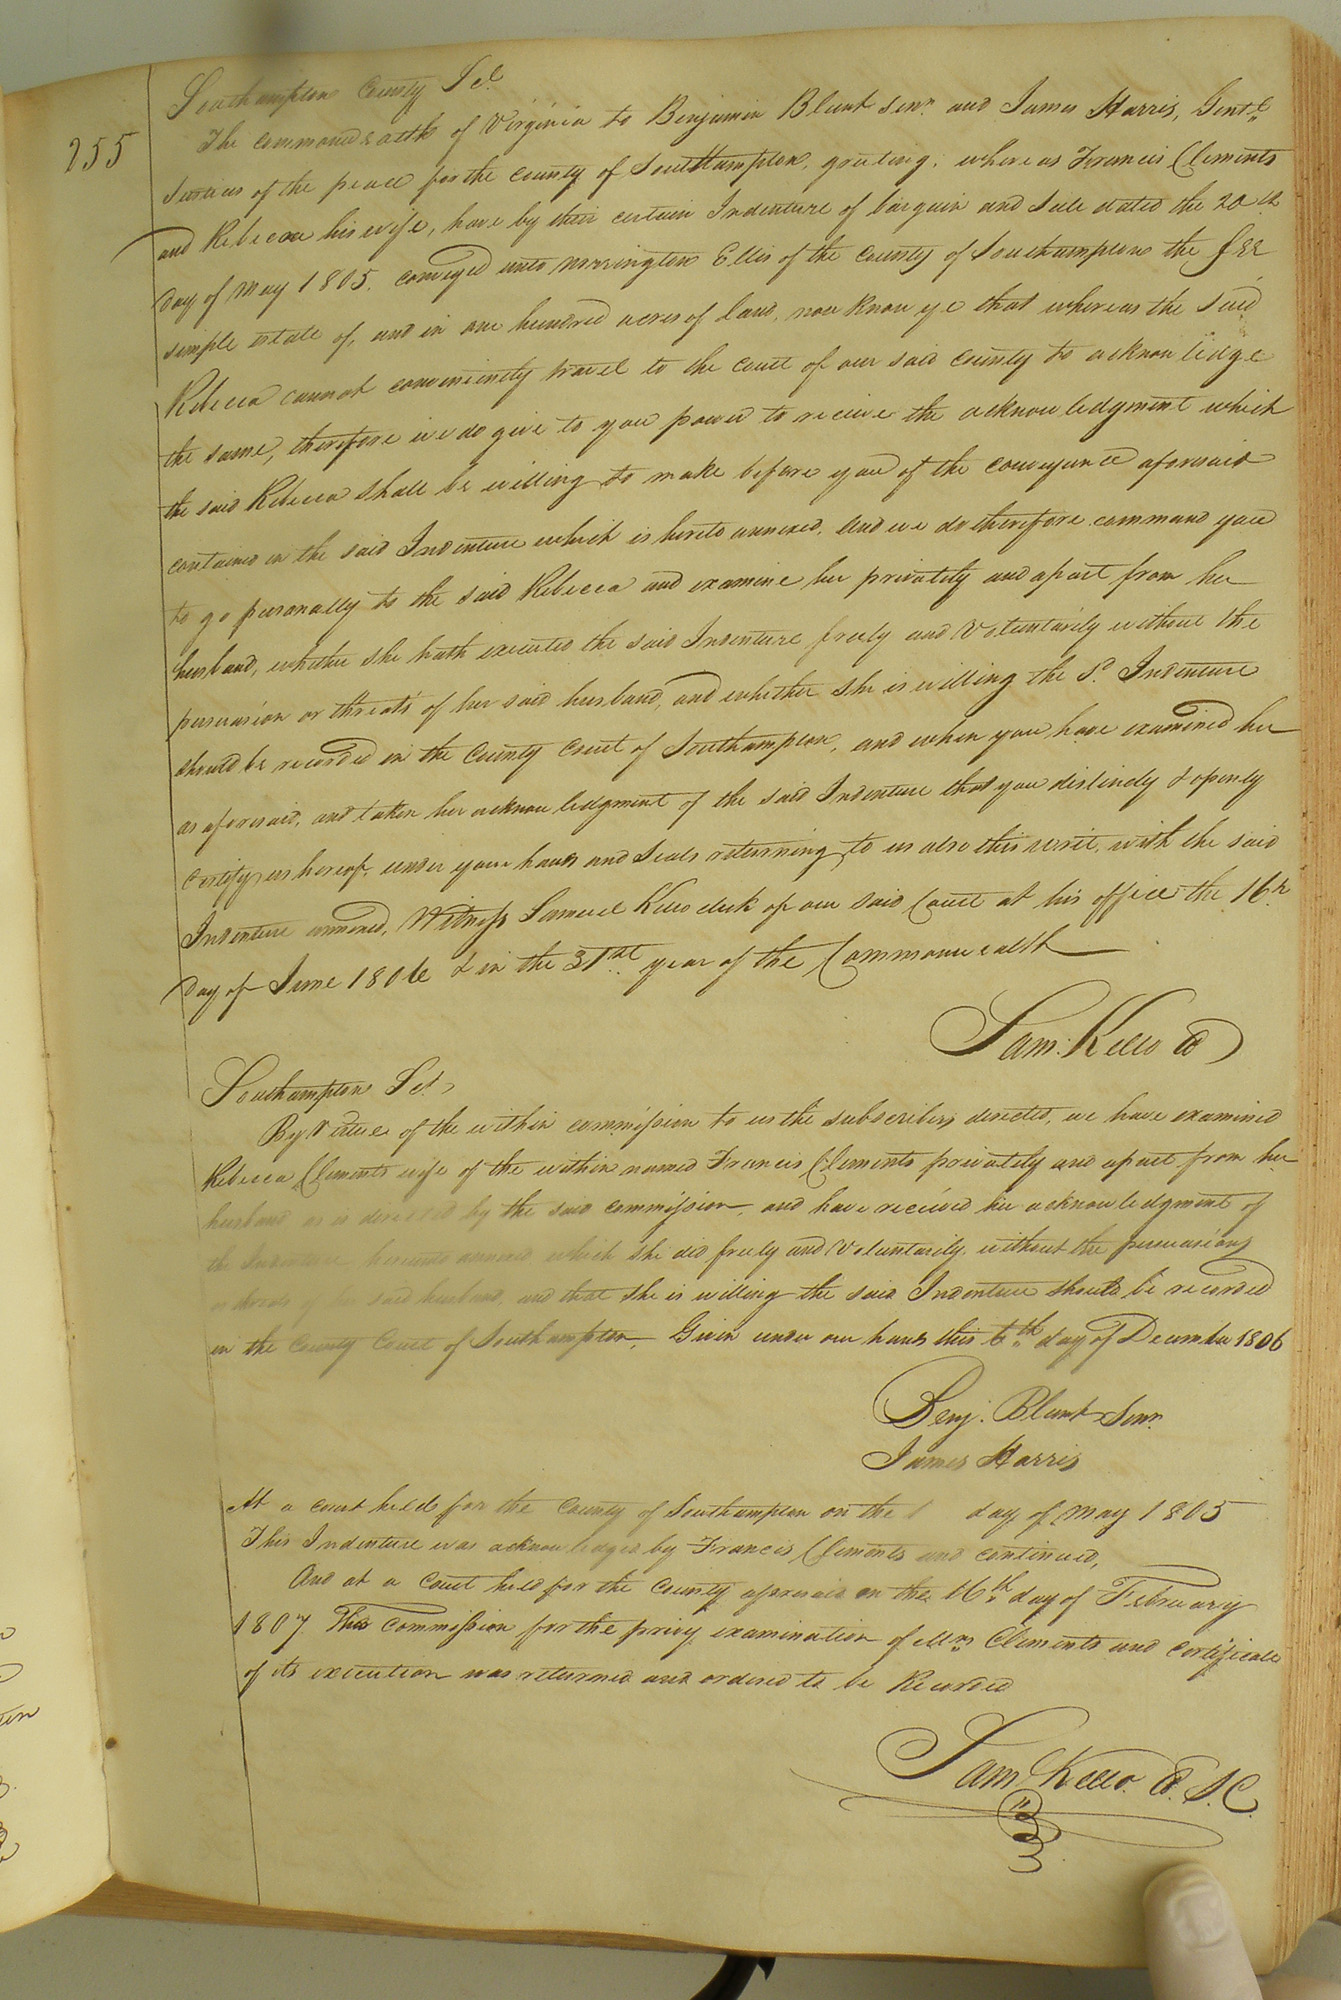 255
Southampton County Sct.
The commonwealth of Virginia to Benjamin Blunt Senr. and James Harris, Gentle.
Justices of the peace for the county of Southampton, greeting, whereas Francis Clements
and Rebecca his wife, have by their certain Indenture of bargain and Sale dated the 20th
day of May 1805. conveyed unto Norrington Ellis of the county of Southampton the fee
simple estate of, and in one hundred acres of land, now know ye that whereas the said
Rebecca cannot conveniently travel to the court of our said county to acknowledge
the same, therefore we do give to you power to receive the acknowledgment which
the said Rebecca shall be willing to make before you of the conveyance aforesaid
contained in the said Indenture which is hereto annexed. And we do therefore command you
to go personally to the said Rebecca and examine her privately and apart from her
husband, whether she hath executed the said Indenture freely and Voluntarily without the
persuasion or threats of her said husband, and whether she is willing the Sd. Indenture
should be recorded in the County Court of Southampton, and when you have examined her
as aforesaid, and taken her acknowledgment of the said Indenture that you distinctly & openly
certify us hereof, under your hands and Seals returning to us also this writ, with the said
Indenture annexed, Witness Samuel Kello clerk of our said Court at his office the 16th
Day of June 1806 & in the 31st year of the Commonwealth
Sam: Kello
Southampton Sct.
By Virtue of the within commission to us the subscribers directed, we have examined
Rebecca Clements wife of the within named Francis Clements privately and apart from her
husband as is directed by the said commission, and have received her acknowledgment of
the Indenture hereunto annexed which she did freely and Voluntarily, without the persuasions
or threats of her said husband, and that she is willing the said Indenture should be recorded
in the County Court of Southampton, Given under our hands this 6th day of December 1806
Benj. Blunt Senr.
James Harris
At a court held for the County of Southampton on the day of May 1805
This Indenture was acknowledged by Francis Clements and continued,
And at a Court held for the County aforesaid on the 16th day of February
1807 This Commission for the privy examination of Mrs Clements and certificate
of its execution was returned and ordered to be Recorded
Sam Kello. Cl. S. C.